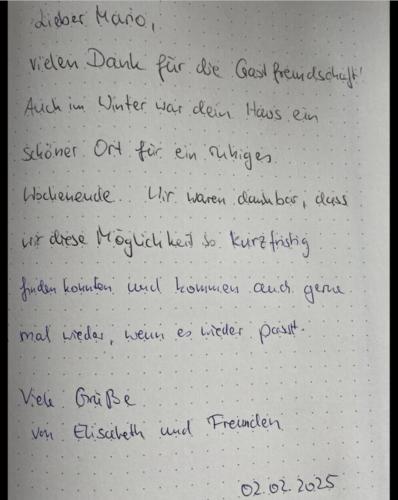 Lieber Mario,
vielen Dank für die Gastfreundschaft!
Auch im Winter war dein Haus ein
schöner Ort für ein ruhiges
Wochenende. Wir waren dankbar, dass
wir diese Möglichkeit so kurzfristig
finden konnten und kommen auch gerne
mal wieder, wenn es wieder passt.
Viele Grüße
von Elisabeth und Freunden
02.02.2025